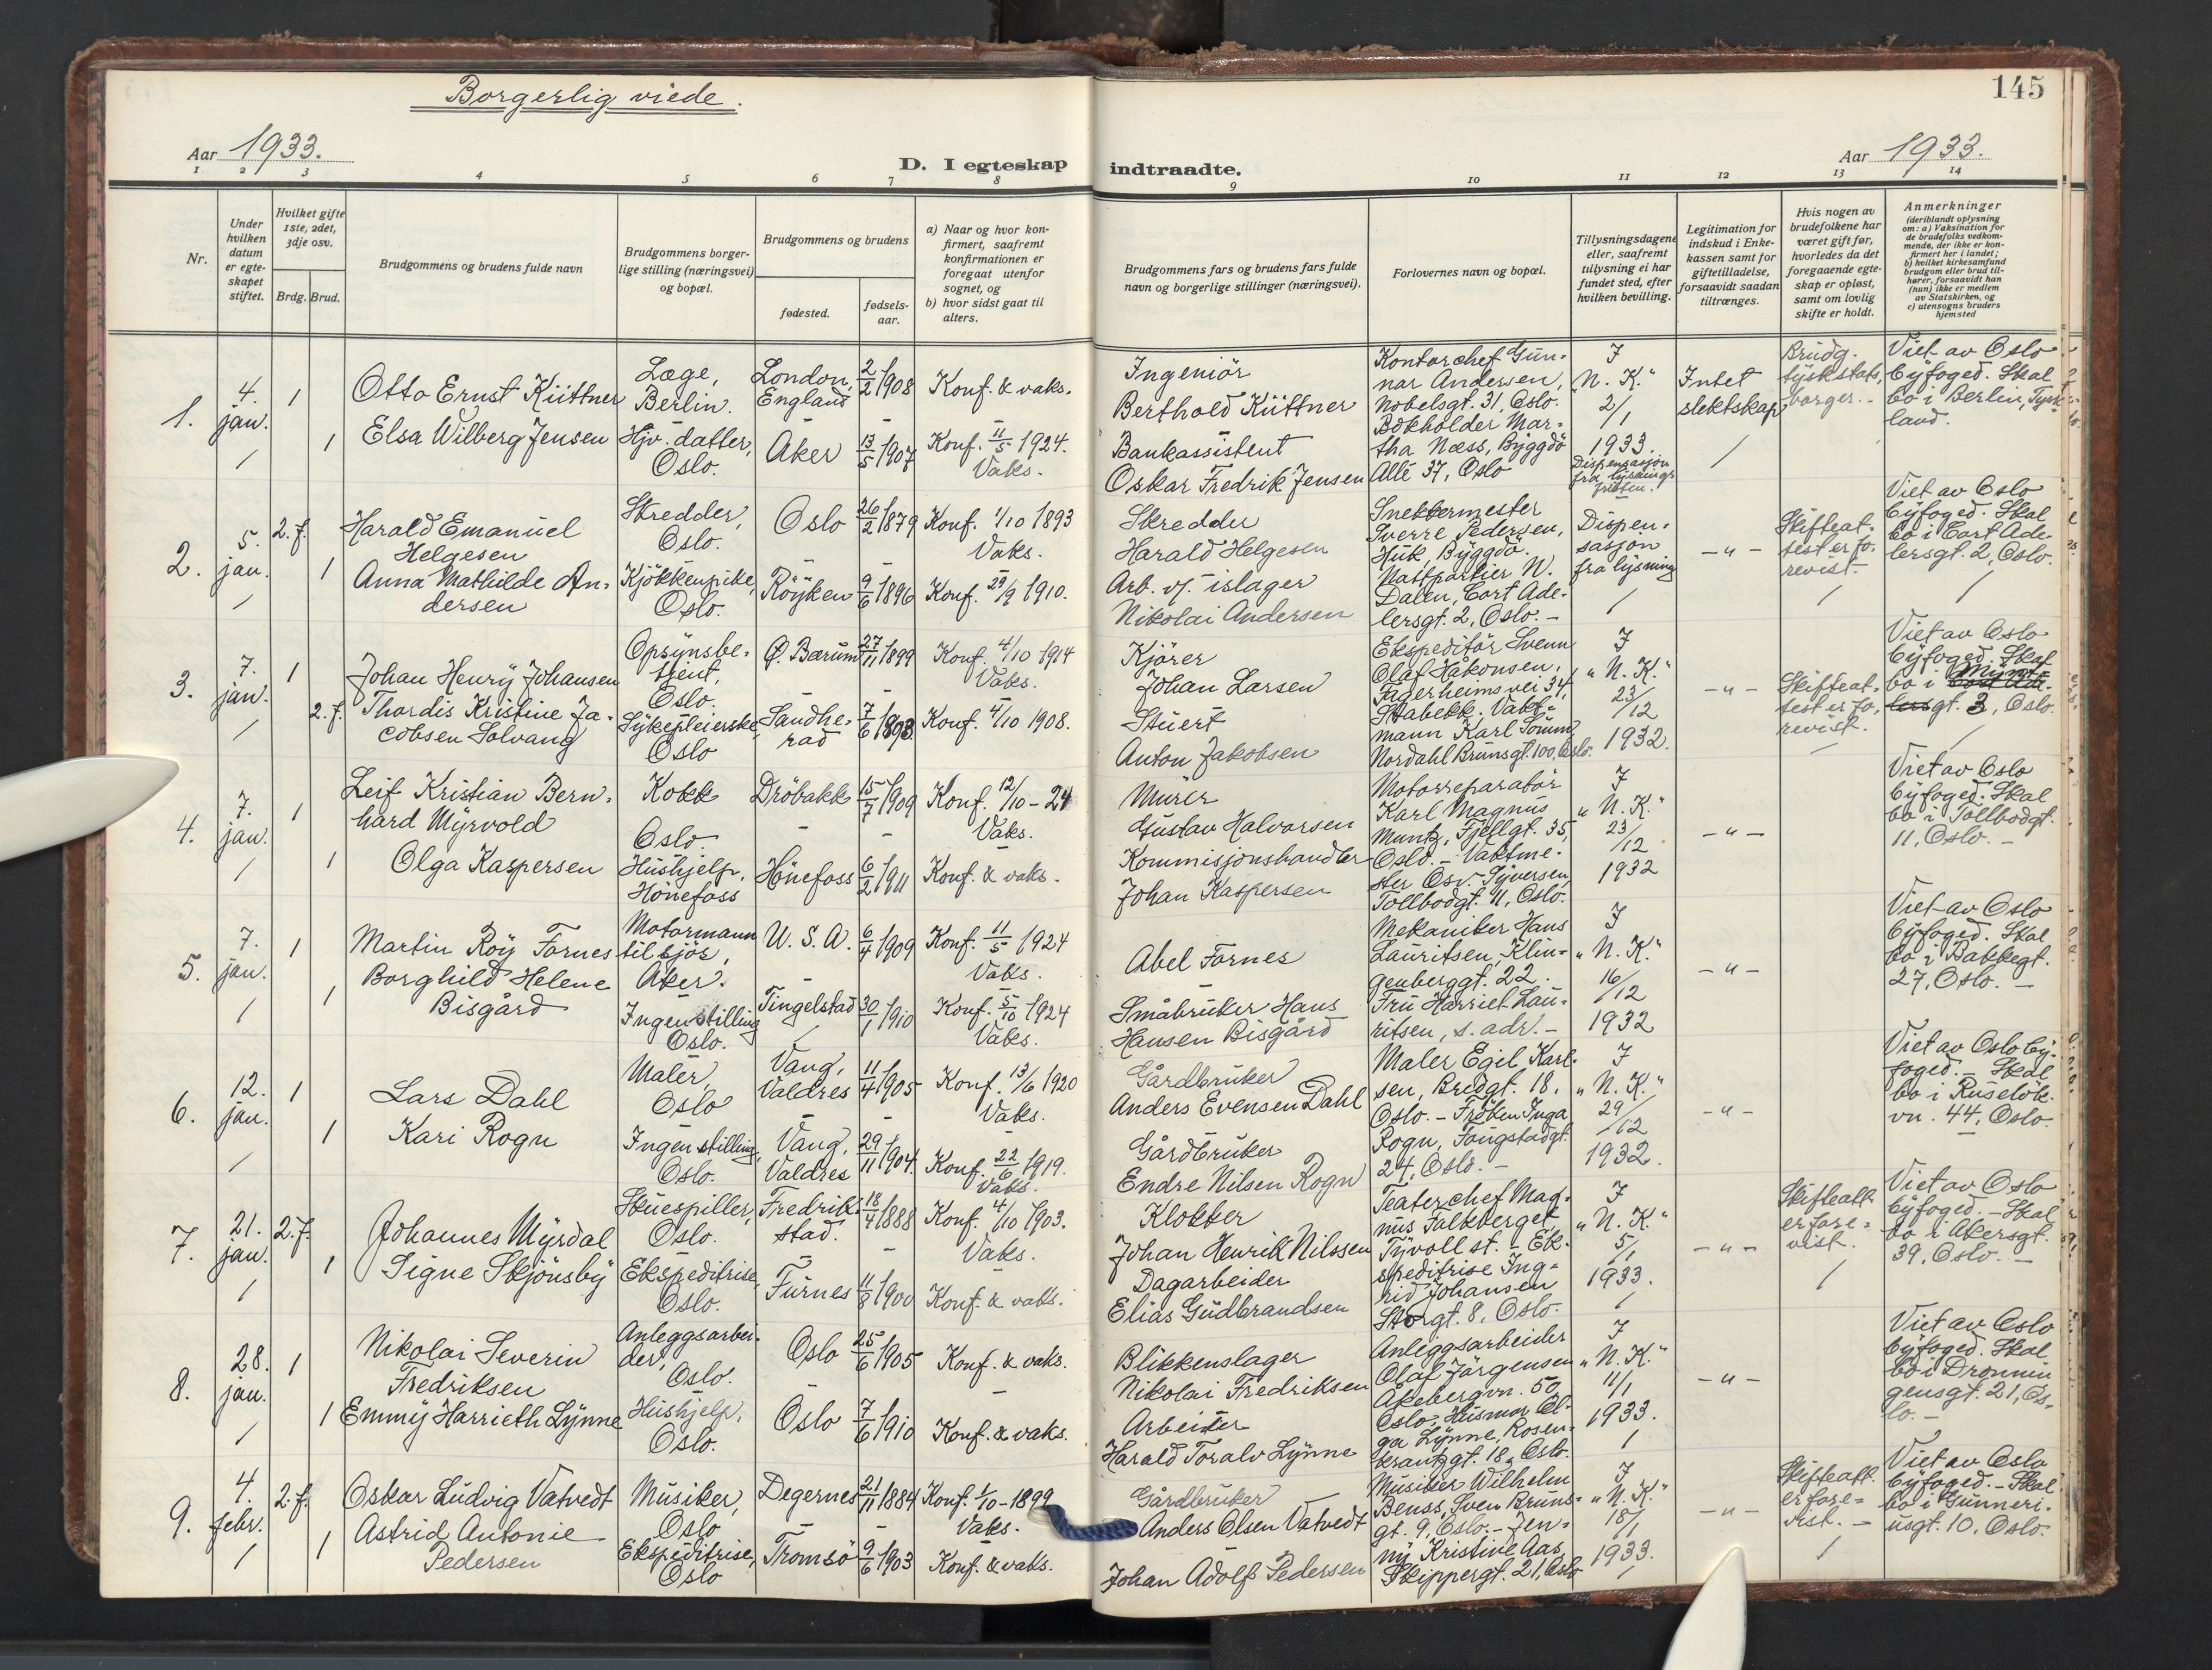 Borgerlig viede.
145
Aar 1933.
D. I egteskap indtraadte.
Aar 1933.
1 2 3 4 5 6 7 8 9 10 11 12 13 14
Nr.
Under
hvilken
datum
er egte-
skapet
stiftet.
Hvilket gifte
1ste, 2det,
3dje osv.
Brdg. Brud.
Brudgommens og brudens fulde navn
Brudgommens borger-
lige stilling (næringsvei)
og bopæl.
Brudgommens og brudens
fødested.
fødsels-
aar.
a) Naar og hvor kon-
firmert, saafremt
konfirmationen er
foregaat utenfor
sognet, og
b) hvor sidst gaat til
alters.
Brudgommens fars og brudens fars fulde
navn og borgerlige stillinger (næringsvei).
Forlovernes navn og bopæl.
Tillysningsdagene
eller, saafremt
tillysning ei har
fundet sted, efter
hvilken bevilling.
Legitimation for
indskud i Enke-
kassen samt for
giftetilladelse,
forsaavidt saadan
tiltrænges.
Hvis nogen av
brudefolkene har
været gift før,
hvorledes da det
foregaaende egte-
skap er opløst,
samt om lovlig
skifte er holdt.
Anmerkninger
(deriblandt oplysning
om: a) Vaksination for
de brudefolks vedkom-
mende, der ikke er kon-
firmert her i landet;
b) hvilket kirkesamfund
brudgom eller brud til-
hører, forsaavidt han
(hun) ikke er medlem
av Statskirken, og
c) utensogns bruders
hjemsted
1.
4.
jan.
1
1
Otto Ernst Küttner
Elsa Wilberg Jensen
Læge,
Berlin.
Hjv. datter,
Oslo.
London,
England
Aker
2/2 1908
13/5 1907
Konf. & vaks.
Konf. 11/5 1924.
Vaks.
Ingeniör
Berthold Küttner
Bankassistent
Oskar Fredrik Jensen
Kontorchef Gun-
nar Andersen,
Nobelsgt. 31, Oslo.
Bokholder Mar-
tha Næss, Byggdö
Allé 37, Oslo
I
"N. K."
2/1
1933.
Dispensasjon
fra lysnings-
fristen.
Intet
slektskap
Brudg.
tysk stats-
borger.
Viet av Oslo
byfoged. Skal
bo i Berlin, Tysk-
land.
2.
5.
jan.
2. f.
1
Harald Emanuel
Helgesen
Anna Mathilde An-
dersen
Skredder,
Oslo.
Kjökkenpike,
Oslo.
Oslo
Röyken
26/2 1879
9/6 1896
Konf. 1/10 1893
Vaks.
Konf. 29/9 1910.
Skredder
Harald Helgesen
Arb. v. islager
Nikolai Andersen
Snekkermester
Sverre Pedersen,
Huk, Byggdö.
Nattportier N.
Dalen, Cort Ade-
lersgt. 2, Oslo.
Dispen-
sasjon
fra lysning
- " -
Skifteat-
test er fo-
revist.
Viet av Oslo
byfoged. Skal
bo i Cort Ade-
lersgt. 2, Oslo.
3.
7.
jan.
1
2. f.
Johan Henry Johansen
Thordis Kristine Ja-
cobsen Solvang
Opsynsbe-
tjent,
Oslo.
Sykepleierske,
Oslo
Ø. Bærum
Sandhe-
rad
27/11 1899
7/6 1893
Konf. 4/10 1914
Vaks.
Konf. 4/10 1908.
Kjörer
Johan Larsen
Stuert
Anton Jakobsen
Ekspeditör Svenn
Olaf Håkonsen,
Fagerheimsvei 34,
Stabekk. Vakt-
mann Karl
Nordahl Brunsgt. 100, Oslo.
I
"N. K."
23/12
1932.
- " -
Skifteat-
test er fo-
revist.
Viet av Oslo
byfoged. Skal
bo i Mynt-
gt. 3, Oslo.
4.
7.
jan.
1
1
Leif Kristian Bern-
hard Myrvold
Olga Kaspersen
Kokk
Oslo.
Hushjelp,
Hönefoss
Dröbakk
Hönefoss
15/7 1909
6/2 1911
Konf. 12/10 - 24
Vaks.
Konf. & vaks.
Murer
Gustav Halvorsen
Kommisjonshandler
Johan Kaspersen
Motorreparatör
Karl Magnus
Muntz, Fjellgt. 35,
Oslo. - Vaktme-
ster Osv. Syversen,
Tollbodgt. 11, Oslo.
I
"N. K."
23/12
1932
- " -
Viet av Oslo
byfoged. Skal
bo i Tollbodgt.
11, Oslo.
5.
7.
jan.
1
1
Martin Roy Fornes
Borghild Helene
Bisgård
Motormann
til sjös,
Aker.
Ingen stilling
Oslo.
U. S. A.
Tingelstad
6/4 1909
30/1 1910
Konf. 11/5 1924
Vaks.
Konf. 5/10 1924
Vaks.
Abel Fornes
Småbruker Hans
Hansen Bisgård
Mekaniker Hans
Lauritsen, Klin-
genberggt. 22.
Fru Harriet Lau-
ritsen, s. adr.
I
"N. K."
16/12
1932
- " -
Viet av Oslo
byfoged. Skal
bo i Bakkegt.
27, Oslo.
6.
12.
jan.
1
1
Lars Dahl
Kari Rogn
Maler,
Oslo
Ingen stilling,
Oslo.
Vang,
Valdres
Vang,
Valdres
11/4 1905
29/11 1904.
Konf. 13/6 1920
Vaks.
Konf. 22/6 1919.
Vaks.
Gårdbruker
Anders Evensen Dahl
Gårdbruker
Endre Nilsen Rogn
Maler Egil Karl-
sen, Bredgt. 18,
Oslo. - Fröken Inga
Rogn, Fougstadgt.
24, Oslo.
I
"N. K."
29/12
1932.
- " -
Viet av Oslo by-
foged. - Skal
bo i Ruselök-
vn. 44, Oslo.
7.
21.
jan.
2. f.
1
Johannes Myrdal
Signe Skjönsby
Skuespiller,
Oslo.
Ekspeditrise,
Oslo.
Fredrik-
stad.
Furnes
18/4 1888
11/8 1900
Konf. 4/10 1903.
Vaks.
Konf. & vaks.
Klokker
Johan Henrik Nilssen
Dagarbeider
Elias Gudbrandsen
Teaterchef Mag-
nus Falkberget,
Tyvoll st. - Ek-
speditrise Ing-
rid Johansen
Storgt. 8, Oslo.
I
"N. K."
5/1
1933.
- " -
Skifteatt.
er fore-
vist.
Viet av Oslo
byfoged. - Skal
bo i Akersgt.
39, Oslo.
8.
28.
jan.
1
1
Nikolai Severin
Fredriksen
Emmy Harrieth Lynne
Anleggsarbei-
der,
Oslo.
Hushjelp,
Oslo.
Oslo
Oslo
25/6 1905
7/6 1910
Konf. & vaks.
Konf. & vaks.
Blikkenslager
Nikolai Fredriksen
Arbeider
Harald Toralv Lynne
Anleggsarbeider
Olaf Jörgensen
Åkebergvn. 50,
Oslo, Husmor Ol-
ga Lynne, Rosen-
krantzgt. 18, Oslo.
I
"N. K."
11/1
1933.
- " -
Viet av Oslo
byfoged. Skal
bo i Dronnin-
gensgt. 21, Os-
lo.
9.
4.
febr.
2. f.
1
Oskar Ludvig Vatvedt
Astrid Antonie
Pedersen
Musiker,
Oslo
Ekspeditrise,
Oslo
Degernes
Tromsö
21/11 1884
9/6 1903
Konf. 1/10 - 1899
Vaks.
Konf. & vaks.
Gårdbruker
Anders Olsen Vatvedt
Johan Adolf Pedersen
Musiker Wilhelm
Benss, Sven Bruns-
gt. 9, Oslo. - Jen-
ny Kristine Aas,
Skippergt. 21, Oslo
I
"N. K."
18/1
1933.
- " -
Skifteatt.
er fore-
vist.
Viet av Oslo
byfoged. - Skal
bo i Gunneri-
usgt. 10, Oslo.